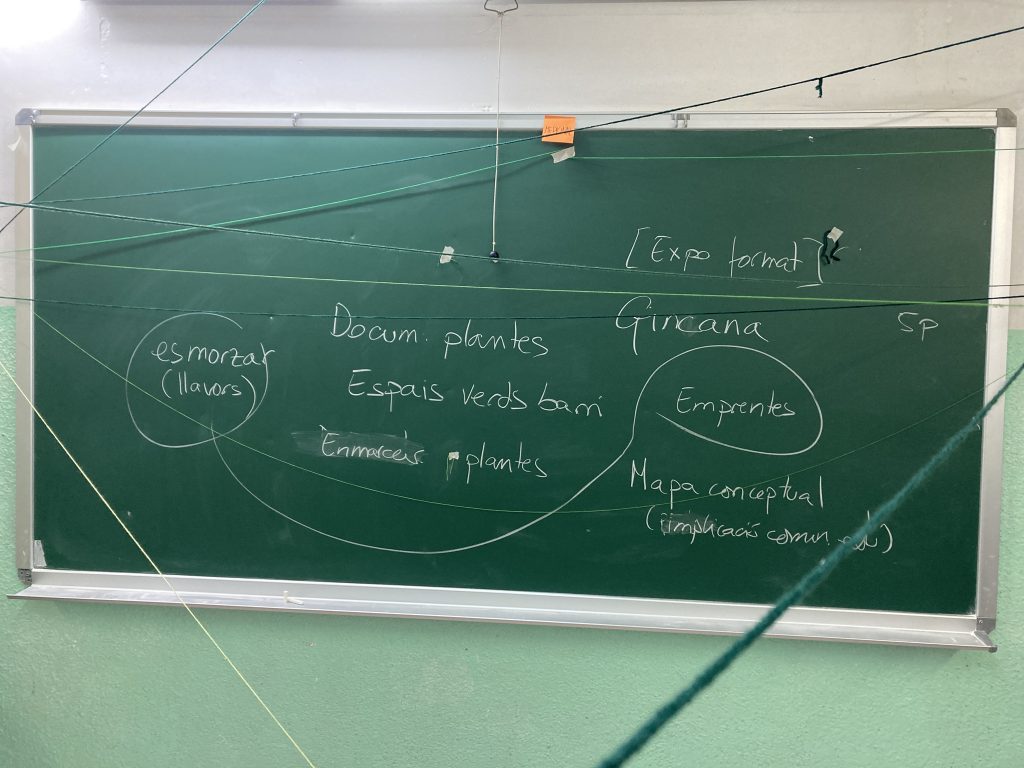 [Expo format]
Docum. plantes
Gincana
5p
esmorzar
(llavors)
Espais verds barri
Emprentes
plantes
Mapa conceptual
(implicació comun. edu)